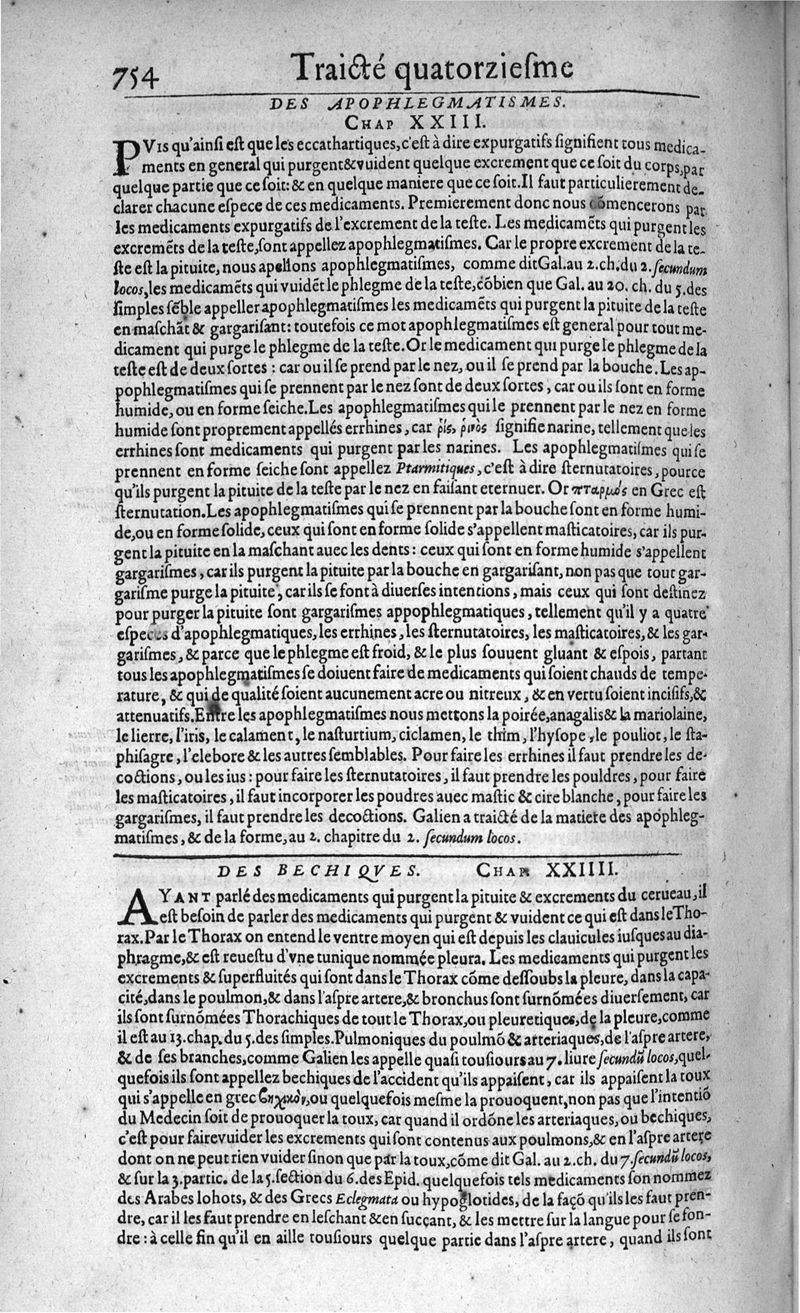 754
Traicté quatorziesme
DES APOPHLEGMATISMES.
CHAP XXIII.
PVis qu'ainſi eſt que les eccathartiques, c'eſt à dire expurgatifs ſignifient tous medica-
ments en general qui purgent & vuident quelque excrement que ce ſoit du corps, par
quelque partie que ce ſoit: & en quelque maniere que ce ſoit. Il faut particulierement de-
clarer chacune eſpece de ces medicaments. Premierement donc nous cõmencerons par
les medicaments expurgatifs de l'excrement de la teſte. Les medicamẽts qui purgent les
excremẽts de la teſte, ſont appellez apophlegmatiſmes. Car le propre excrement de la te-
ſte eſt la pituite, nous apellons apophlegmatiſmes, comme dit Gal. au 2. ch. du 2. ſecundum
locos, les medicamẽts qui vuidẽt le phlegme de la teſte, cõbien que Gal. au 20. ch. du 5. des
ſimples ſẽble appeller apophlegmatiſmes les medicamẽts qui purgent la pituite de la teſte
en maſchãt & gargariſant: toutefois ce mot apophlegmatiſmes eſt general pour tout me-
dicament qui purge le phlegme de la teſte. Or le medicament qui purge le phlegme de la
teſte eſt de deux ſortes : car ou il ſe prend par le nez, ou il ſe prend par la bouche. Les ap-
pophlegmatiſmes qui ſe prennent par le nez ſont de deux ſortes, car ou ils ſont en forme
humide, ou en forme ſeiche. Les apophlegmatiſmes qui ſe prennent par le nez en forme
humide ſont proprement appellés errhines, car ῥὶς, ῥινὸς ſignifie narine, tellement que les
errhines ſont medicaments qui purgent par les narines. Les apophlegmatiſmes qui ſe
prennent en forme ſeiche ſont appellez Ptarmitiques, c'eſt à dire ſternutatoires, pource
qu'ils purgent la pituite de la teſte par le nez en faiſant eternuer. Or πταρμὸς en Grec eſt
ſternutation. Les apophlegmatiſmes qui ſe prennent par la bouche ſont en forme humi-
de, ou en forme ſolide, ceux qui ſont en forme ſolide s'appellent maſticatoires, car ils pur-
gent la pituite en la maſchant auec les dents : ceux qui ſont en forme humide s'appellent
gargariſmes, car ils purgent la pituite par la bouche en gargariſant, non pas que tout gar-
gariſme purge la pituite, car ils ſe font à diuerſes intentions, mais ceux qui ſont deſtinez
pour purger la pituite ſont gargariſmes appophlegmatiques, tellement qu'il y a quatre
eſpeces d'apophlegmatiques, les errhines, les ſternutatoires, les maſticatoires, & les gar-
gariſmes, & parce que le phlegme eſt froid, & le plus ſouuent gluant & eſpois, partant
tous les apophlegmatiſmes ſe doiuent faire de medicaments qui ſoient chauds de tempe-
rature, & qui de qualité ſoient aucunement acre ou nitreux, & en vertu ſoient inciſifs, &
attenuatifs. Entre les apophlegmatiſmes nous mettons la poirée, anagalis & la mariolaine,
le lierre, l'iris, le calament, le naſturtium, ciclamen, le thim, l'hyſope, le pouliot, le ſta-
phiſagre, l'elebore & les autres ſemblables. Pour faire les errhines il faut prendre les de-
coctions, ou les ius : pour faire les ſternutatoires, il faut prendre les pouldres, pour faire
les maſticatoires, il faut incorporer les poudres auec maſtic & cire blanche, pour faire les
gargariſmes, il faut prendre les decoctions. Galien a traicté de la matiere des apophleg-
matiſmes, & de la forme, au 2. chapitre du 2. ſecundum locos.
DES BECHIQVES. CHAP. XXIIII.
AYANT parlé des medicaments qui purgent la pituite & excrements du cerueau, il
eſt beſoin de parler des medicaments qui purgent & vuident ce qui eſt dans le Tho-
rax. Par le Thorax on entend le ventre moyen qui eſt depuis les clauicules iuſques au dia-
phragme, & eſt reueſtu d'vne tunique nommée pleura. Les medicaments qui purgent les
excrements & ſuperfluités qui ſont dans le Thorax cõme deſſoubs la pleure, dans la capa-
cité, dans le poulmon, & dans l'aſpre artere, & bronchus ſont ſurnõmées diuerſement, car
ils ſont ſurnõmées Thorachiques de tout le Thorax, ou pleuretiques, de la pleure, comme
il eſt au 13. chap. du 5. des ſimples. Pulmoniques du poulmõ & arteriaques, de l'aſpre artere,
& de ſes branches, comme Galien les appelle quaſi touſiours au 7. liure ſecundũ locos, quel-
quefois ils ſont appellez bechiques de l'accident qu'ils appaiſent, car ils appaiſent la toux
qui s'appelle en grec βηχικὸν, ou quelquefois meſme la prouoquent, non pas que l'intentiõ
du Medecin ſoit de prouoquer la toux, car quand il ordõne les arteriaques, ou bechiques,
c'eſt pour faire vuider les excrements qui ſont contenus aux poulmons, & en l'aſpre artere
dont on ne peut rien vuider ſinon que par la toux, cõme dit Gal. au 2. ch. du 7. ſecundũ locos,
& ſur la 3. partic. de la 5. ſection du 6. des Epid. quelquefois tels medicaments ſon nommez
des Arabes lohots, & des Grecs Eclegmata ou hypoglotides, de la façõ qu'ils les faut pren-
dre, car il les faut prendre en leſchant & en ſucçant, & les mettre ſur la langue pour ſe fon-
dre : à celle fin qu'il en aille touſiours quelque partie dans l'aſpre artere, quand ils ſont